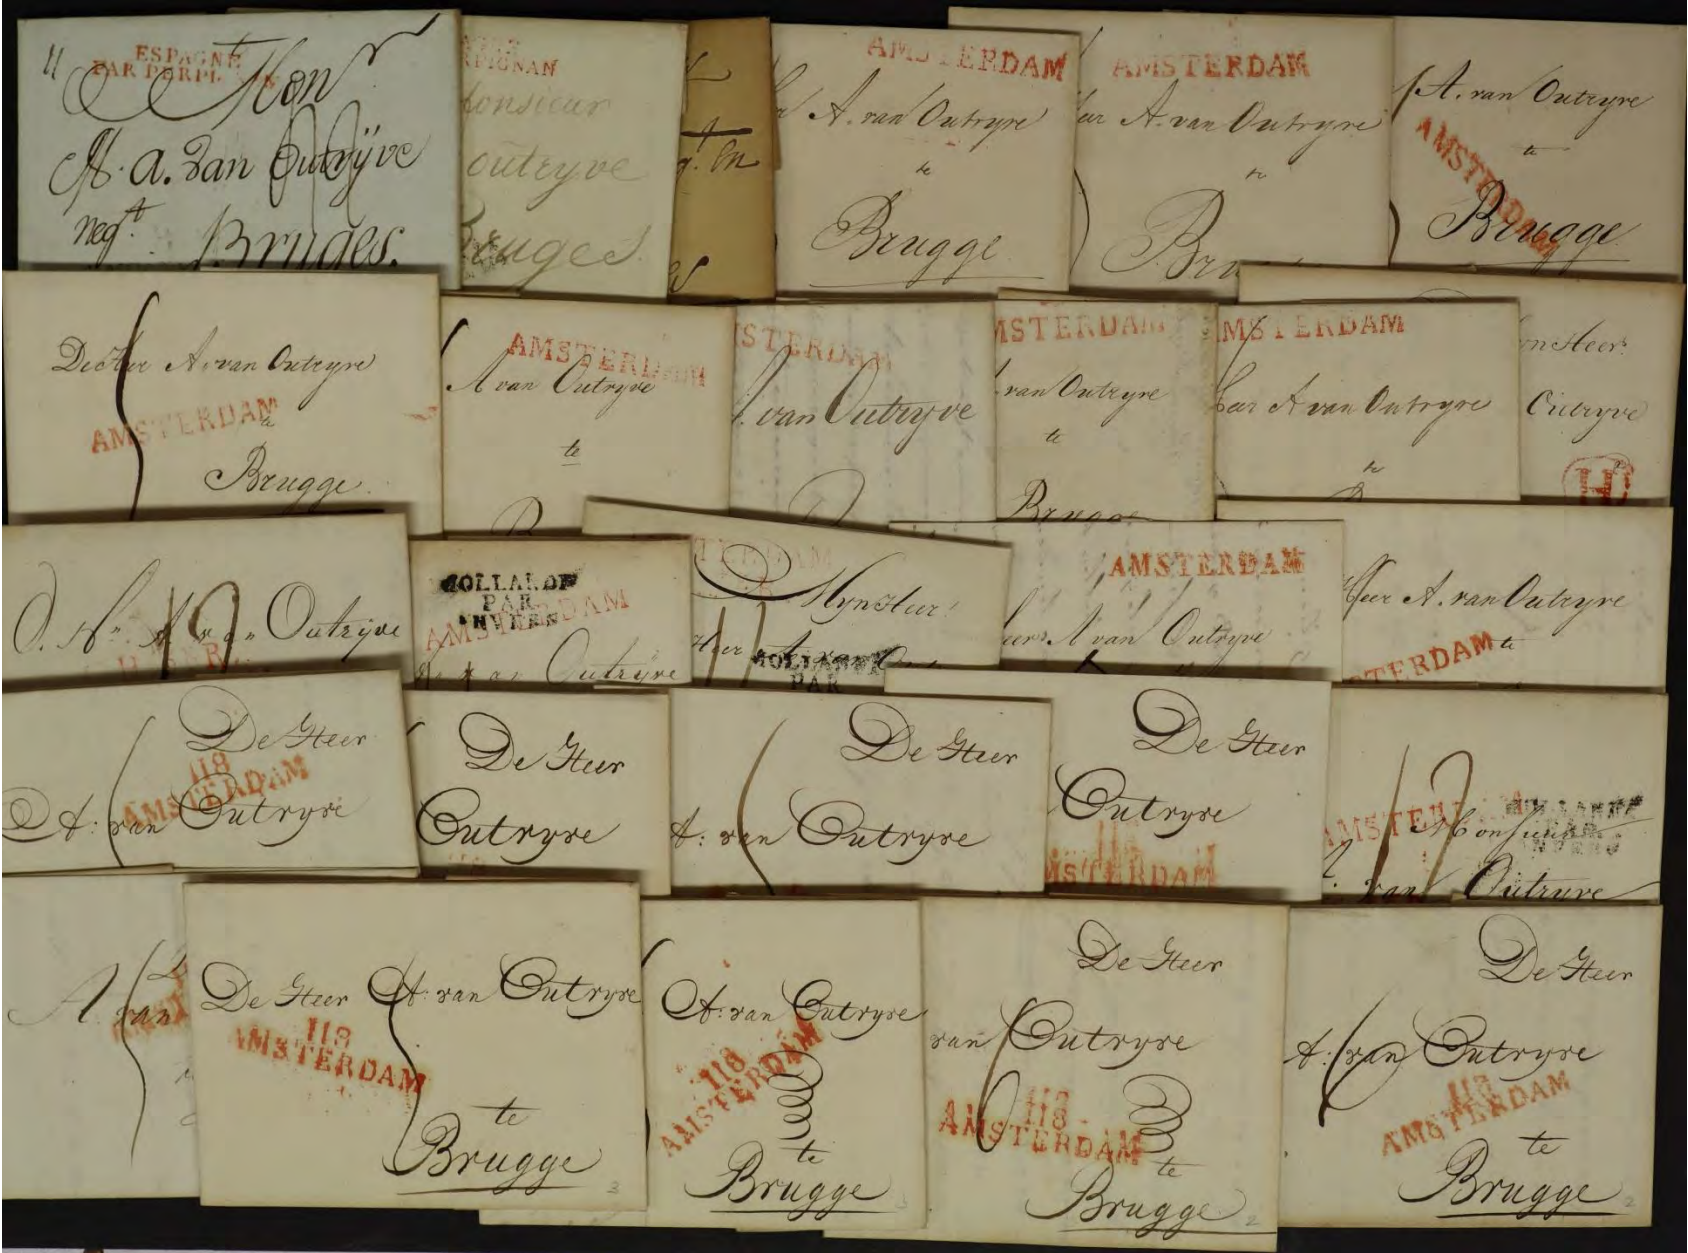 ESPAGNE
PAR PERP
Mon
A. a. Van Outrÿve
negt.
Bruges.
PIGNAN
onsieur
outryve
Bruges.
AMSTERDAM
A. van Outryve
te
Brugge
AMSTERDAM
A. van Outryve
te
Bru
A. van Outryve
te
AMSTERDAM
Brugge
De Heer A. van Outryve
AMSTERDAM
te
Brugge
AMSTERDAM
A van Outryve
te
STERDAM
van Outryve
MSTERDAM
van Outryve
te
Brugge
MSTERDAM
eer A van Outryve
te
yn Heer
Outryve
D. Hr. A van Outrÿve
HOLLANDE
PAR
ANVERS
AMSTERDAM
van Outrÿve
TERDAM
Myn Heer
Heer A. van
HOLLANDE
PAR
AMSTERDAM
eer A van Outryve
Heer A. van Outryve
te
STERDAM
De Heer
118
AMSTERDAM
A: van Outryve
De Heer
Outryve
De Heer
A: van Outryve
De Heer
Outryve
118
MSTERDAM
AMSTERDAM
HOLLANDE
PAR
ANVERS
Monsieur
van Outryve
A. van
De Heer A: van Outryve
118
AMSTERDAM
te
Brugge
3
A: van Outryve
118
AMSTERDAM
te
Brugge
De Heer
van Outryve
118
118
AMSTERDAM
te
Brugge
2
De Heer
A: van Outryve
118
AMSTERDAM
te
Brugge
2